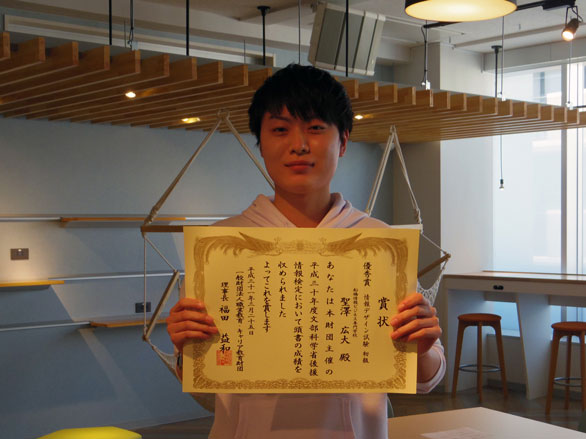 賞状
優秀賞 情報デザイン試験 初級
船橋情報ビジネス専門学校
聖澤 広大 殿
あなたは本財団主催の
平成三十年度文部科学省後援
情報検定において頭書の成績を
収められました
よってこれを賞します
平成三十一年三月二十五日
一般財団法人職業教育・キャリア教育財団
理事長 福田 益和